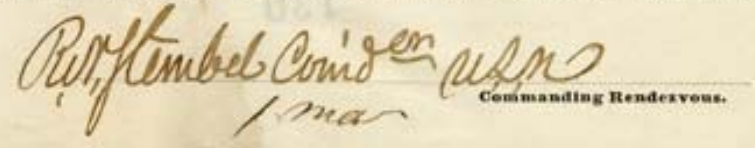 R.N. Stembel Comder USN
Commanding Rendezvous.
1 Mar